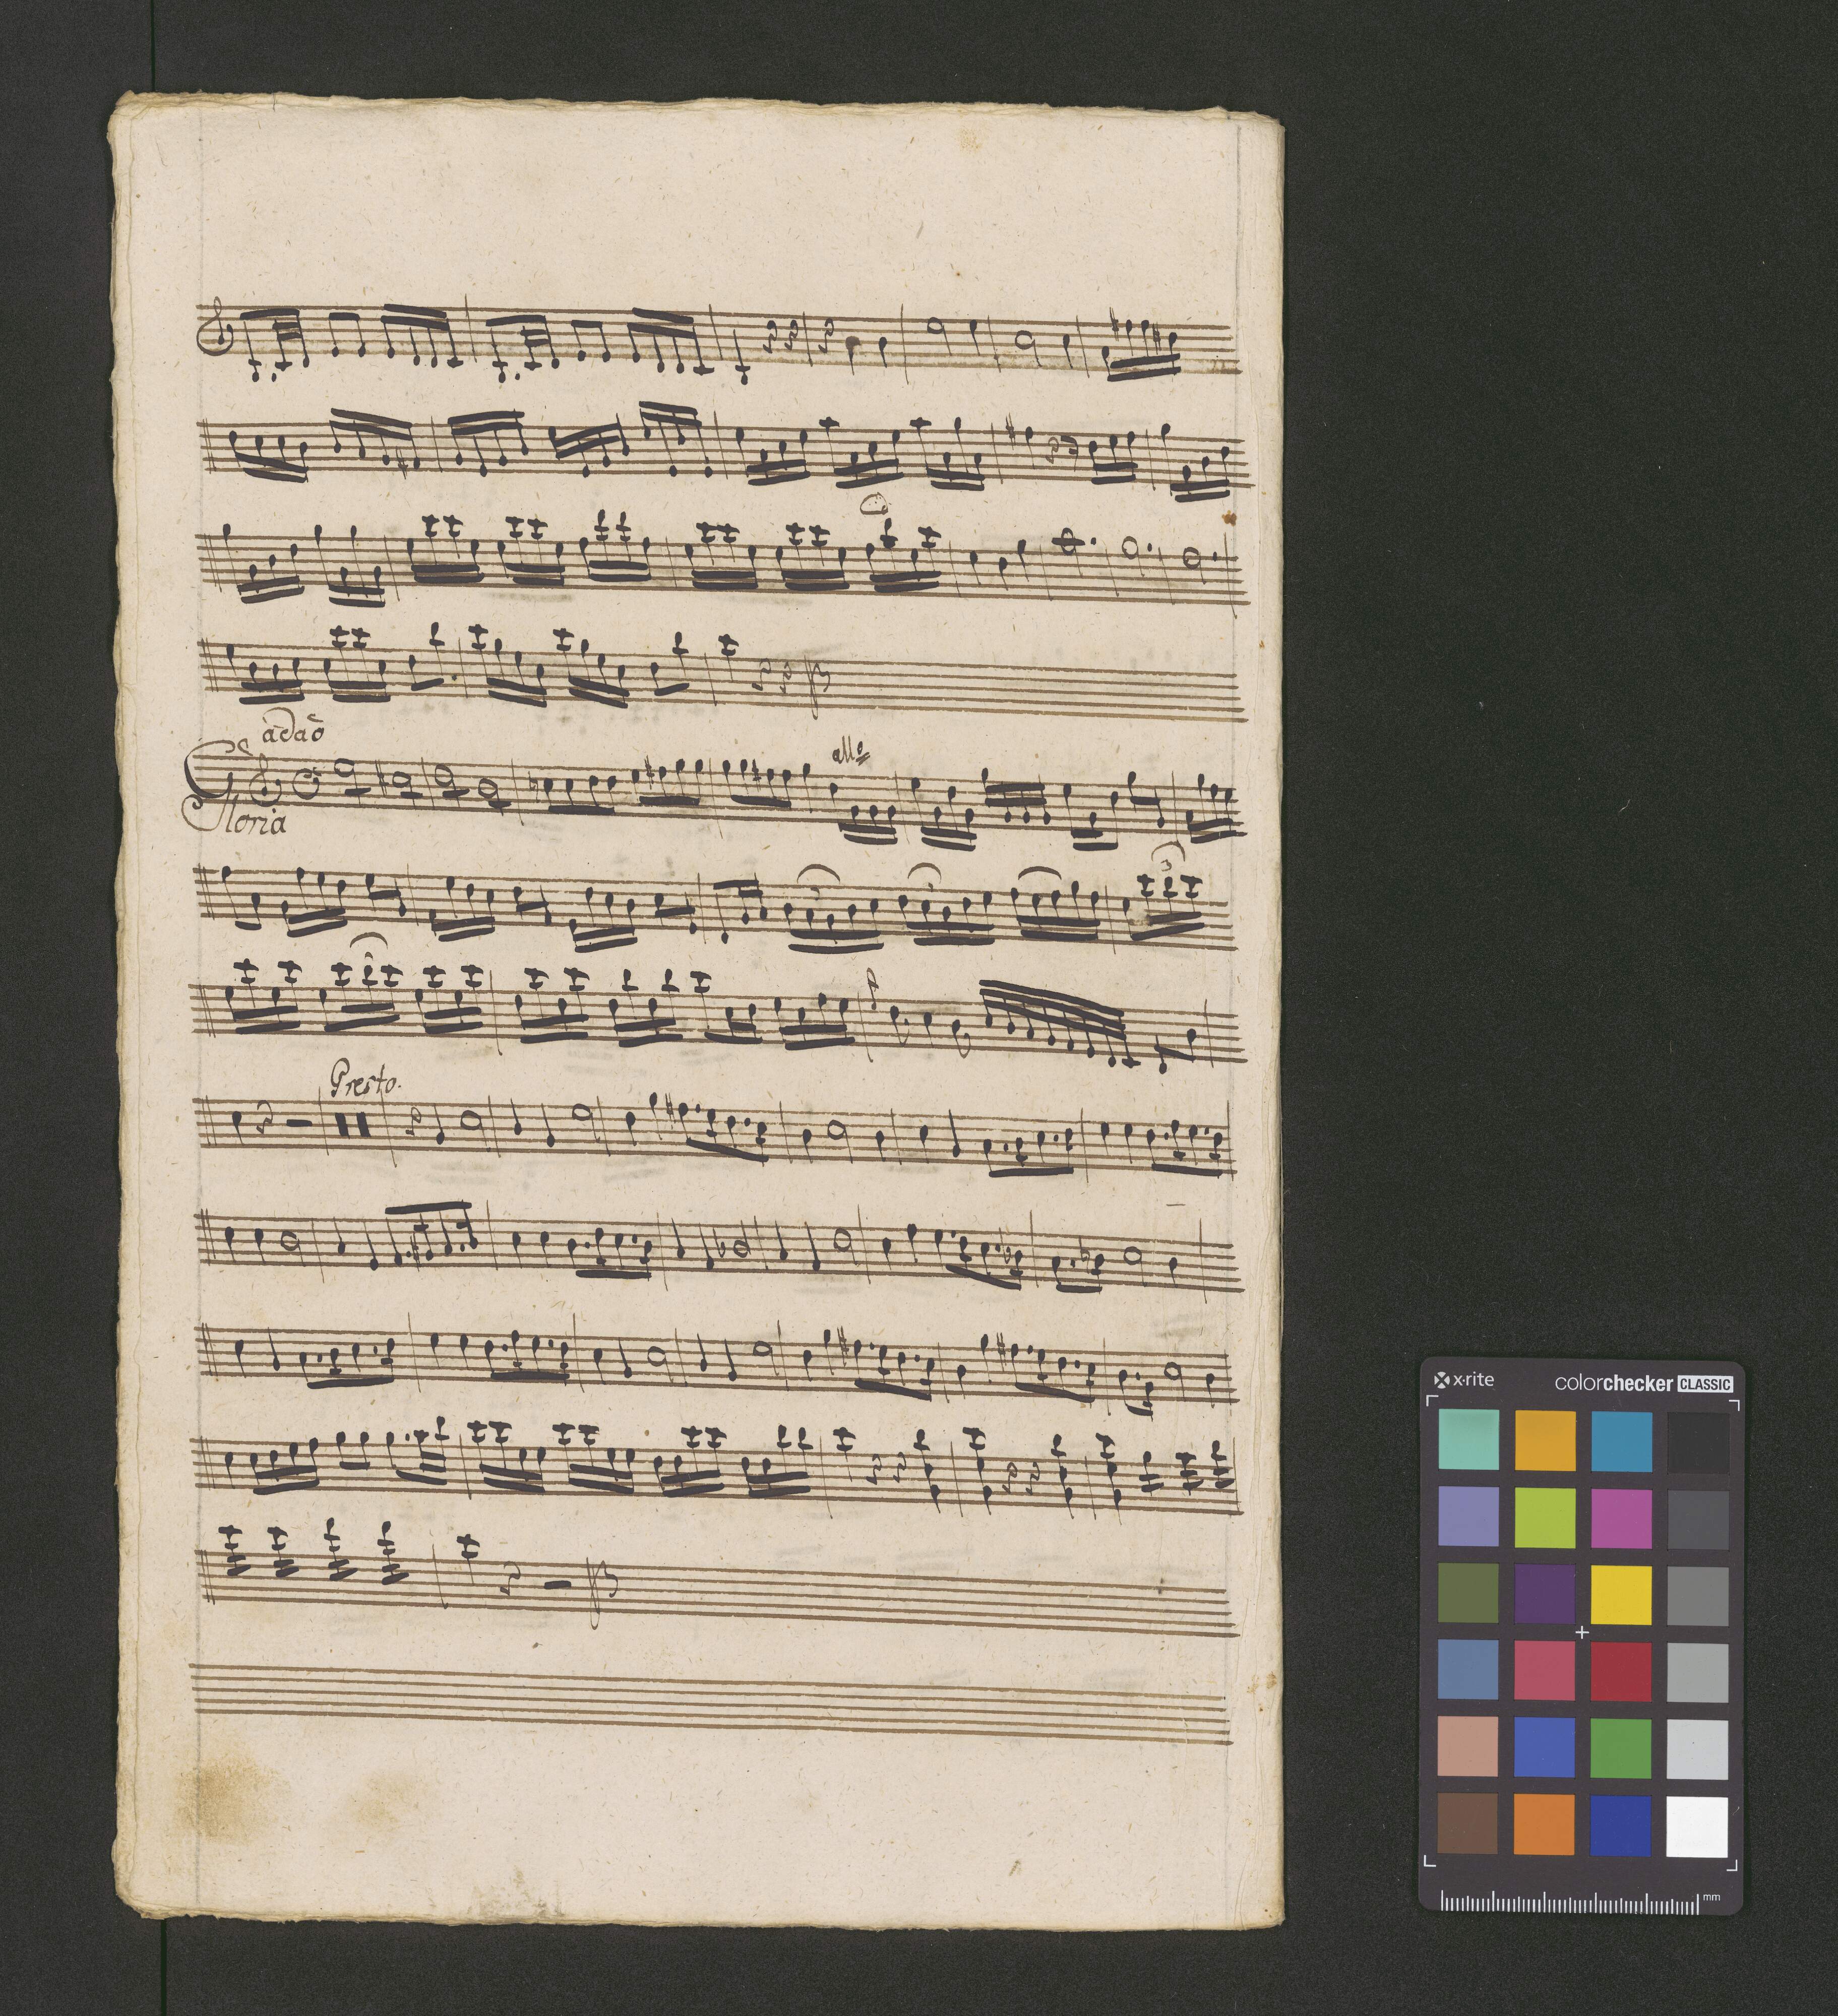 adao
Gloria
allo
3
3
Presto.
x·rite
colorchecker CLASSIC
mm